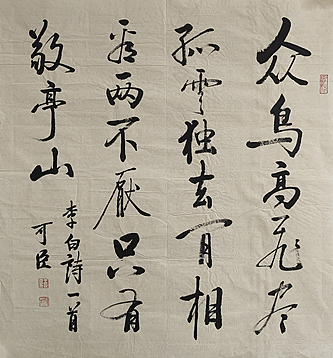 众鸟高飞尽
孤雲独去闲相
看两不厭只有
敬亭山
李白詩一首
可臣